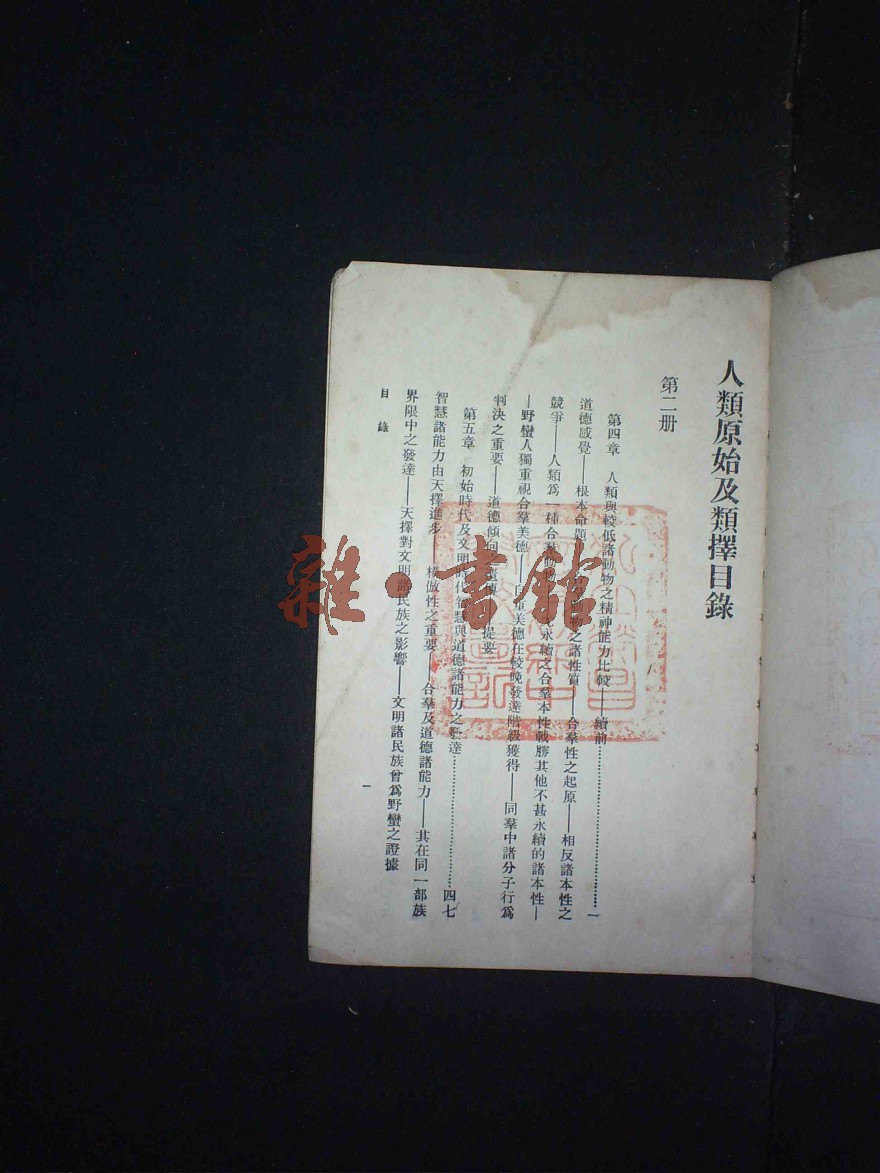 人類原始及類擇目錄
第二册
第四章 人類與較低諸動物之精神能力比較——續前……………………一
道德感覺——根本命題——合羣動物之諸性質——合羣性之起原——相反諸本性之
競爭——人類爲一種合羣動物——永續之合羣本性戰勝其他不甚永續的諸本性—
—野蠻人獨重視合羣美德——自重美德在較晚發達階級獲得——同羣中諸分子行爲
判決之重要——道德傾向之遺傳——提要
第五章 初始時代及文明時代智慧與道德諸能力之發達……………………四七
智慧諸能力由天擇進步——模倣性之重要——合羣及道德諸能力——其在同一部族
界限中之發達——天擇對文明諸民族之影響——文明諸民族曾爲野蠻之證據
目錄
一
雜·書館